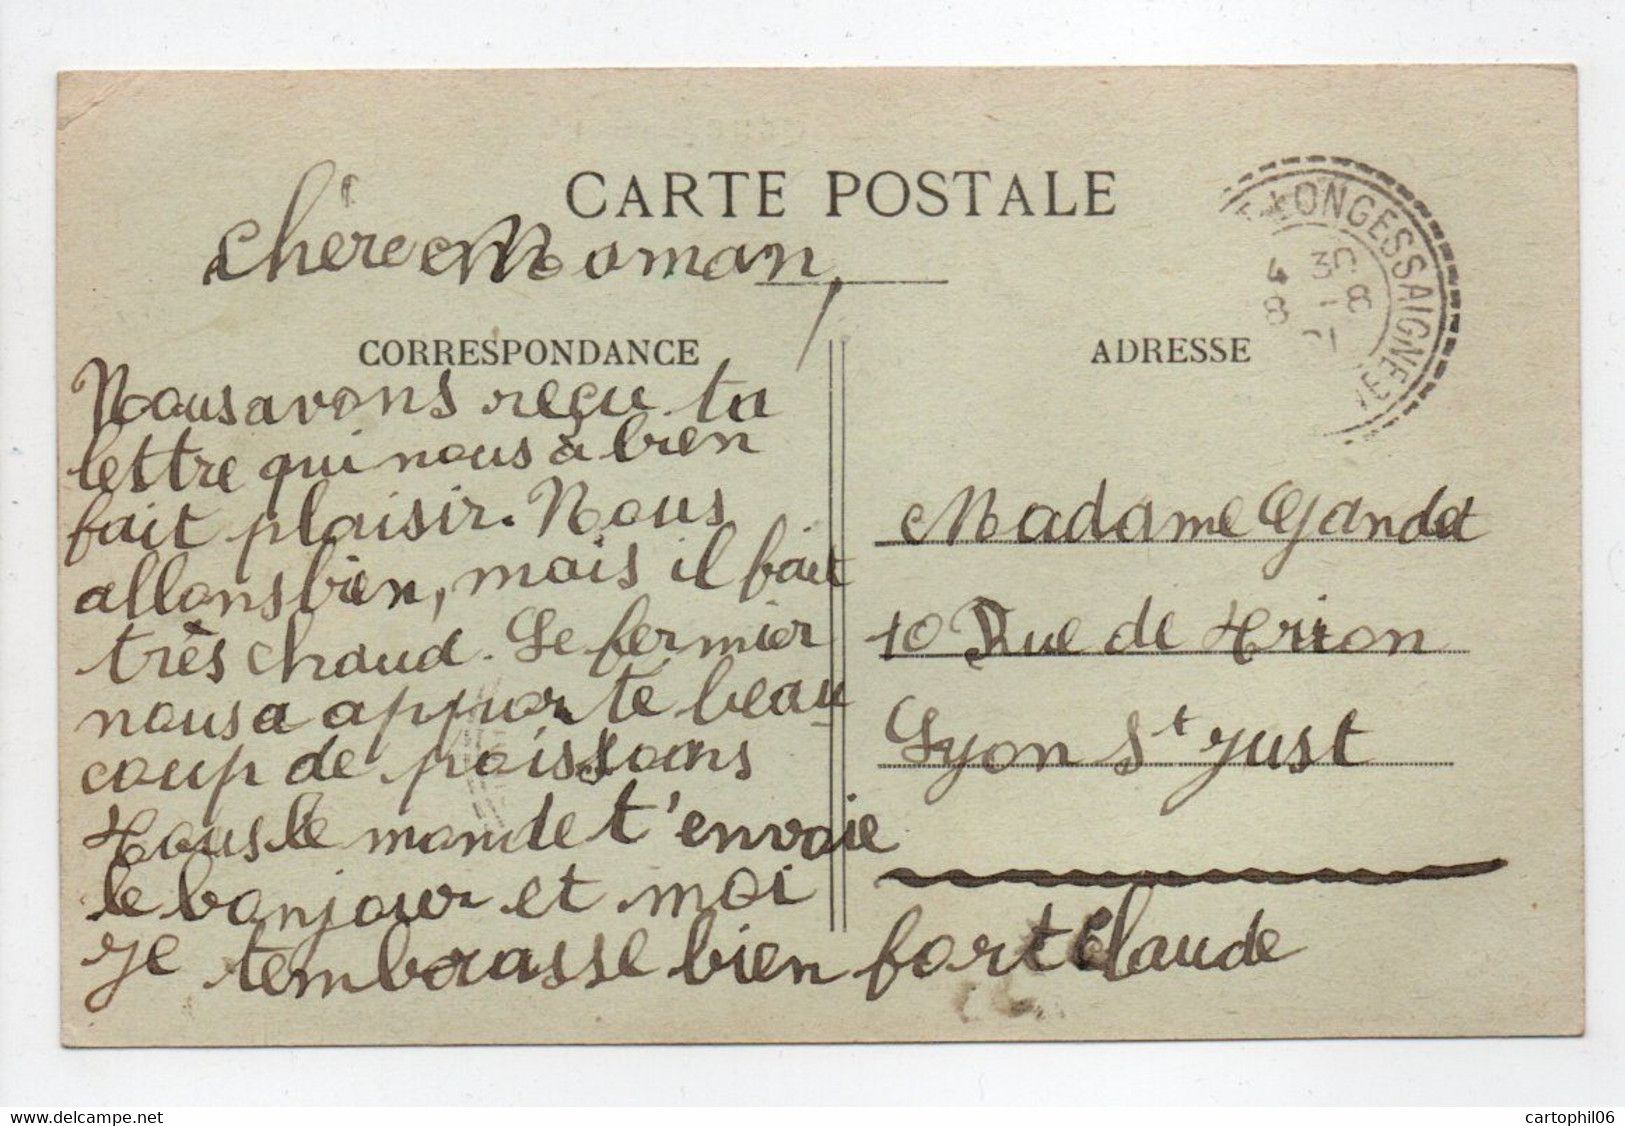 CARTE POSTALE
Chère Maman,
CORRESPONDANCE
Nous avons reçu ta
lettre qui nous à bien
fait plaisir. Nous
allons bien, mais il fait
très chaud. Le fermier
nous a apporté beau
coup de poissons
Tous le monde t'envoie
le bonjour et moi
je tembrasse bien fort Claude
LONGESSAIGNE
ADRESSE
Madame Gandet
10 Rue de Trion
Lyon St Just
delcampe.net
cartophil06